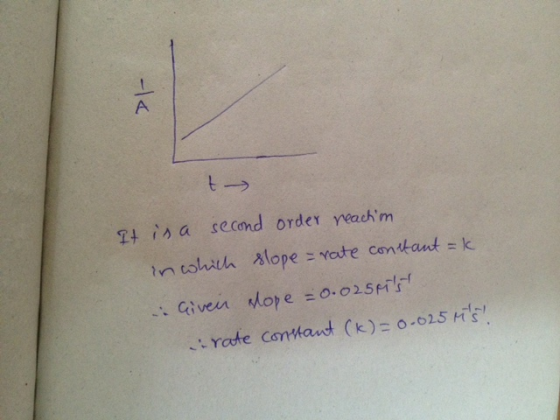 1/A
t →
It is a second order reaction
in which slope = rate constant = k
∴ Given slope = 0.025 M⁻¹s⁻¹
∴ rate constant (k) = 0.025 M⁻¹s⁻¹.